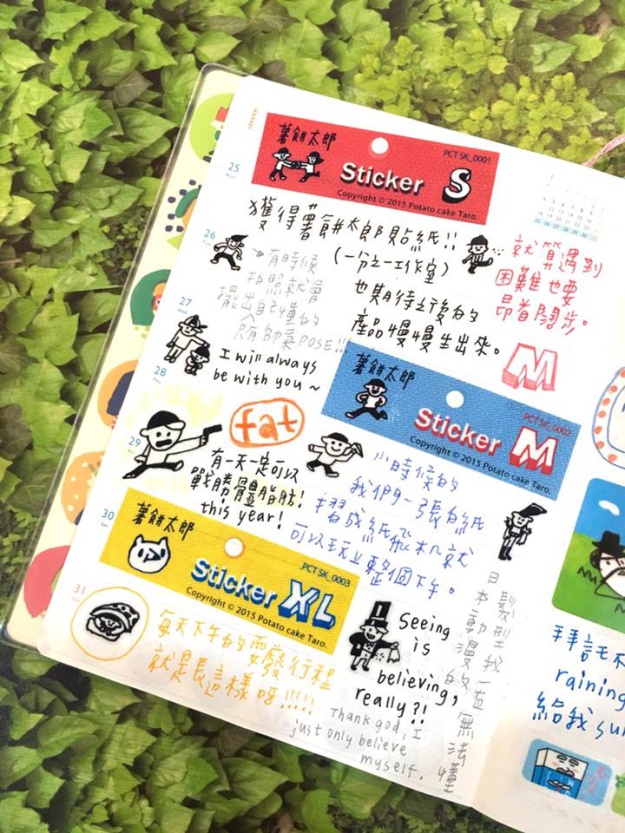 25
薯餅太郎
Sticker S
PCT SK_0001
Copyright © 2015 Potato cake Taro.
獲得薯餅太郎貼紙!!
(一分之一工作室)
也期待之後的
產品慢慢生出來。
就算遇到
困難也要
昂首闊步。
M
26
有時候
拍照就會
擺出自己懂的
POSE!!
27
I will always
be with you ~
28
薯餅太郎
Sticker M
PCT SK_0002
Copyright © 2015 Potato cake Taro.
29
fat
有一天一定可以
戰勝體脂肪!
this year!
小時候的
我們一張白紙
摺成紙飛机就
可以玩整個下午。
30
薯餅太郎
Sticker XL
PCT SK_0003
Copyright © 2015 Potato cake Taro.
日本動漫的
髮型我一直無法懂
31
每天下午的耍廢行程
就是長這樣呀!!!!
Seeing
is
believing,
really?!
Thank god, I
just only believe
myself.
拜託不
raining
給我su